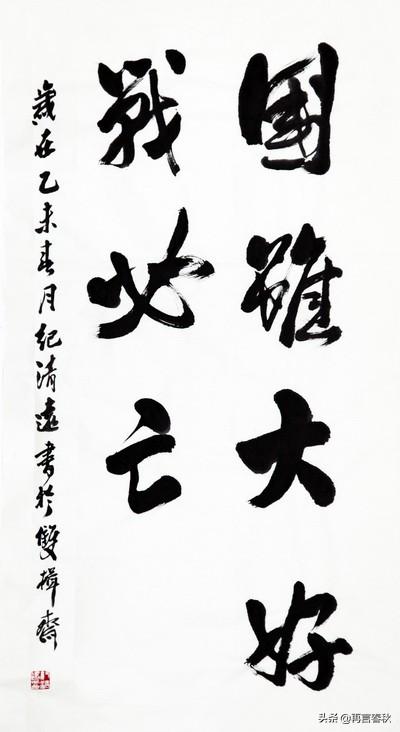 國雖大好
戰必亡
歲在乙未春月紀清遠書於雙揖齋
头条@再言春秋